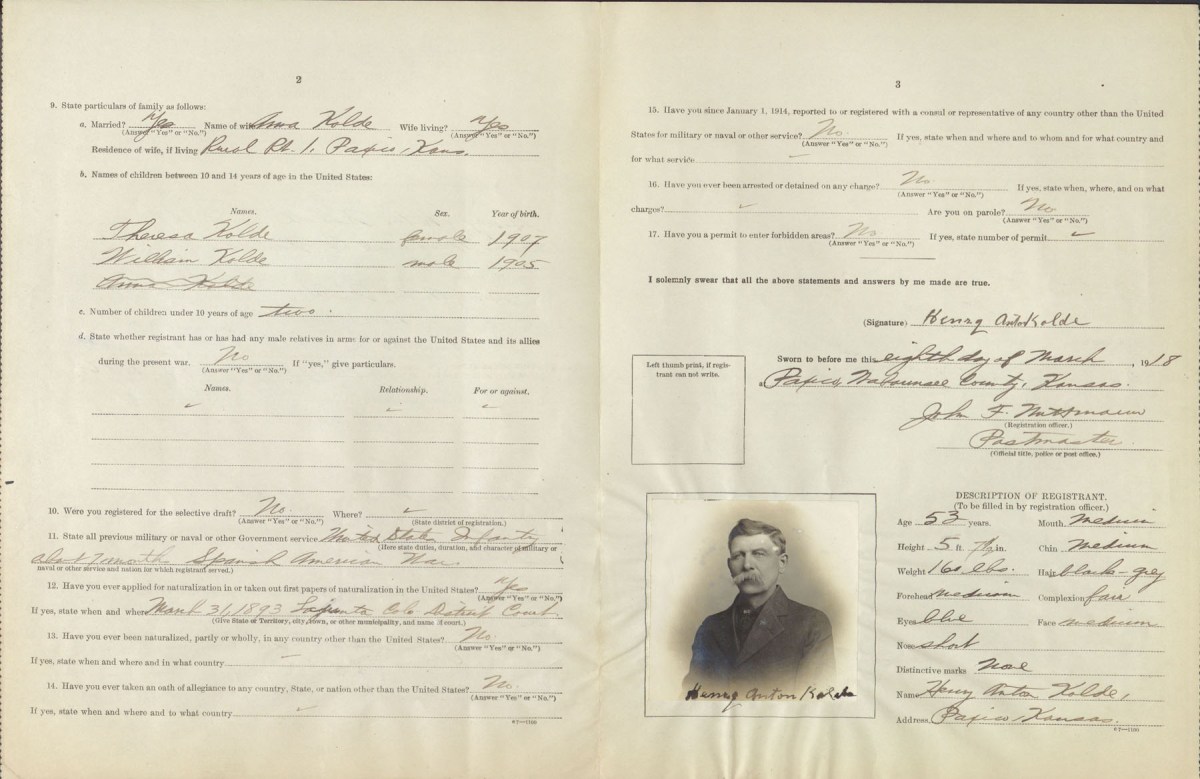 2
9. State particulars of family as follows:
a. Married? Yes Name of wife Anna Kolde Wife living? Yes
(Answer "Yes" or "No.") (Answer "Yes" or "No.")
Residence of wife, if living Rural Rt. 1, Paxico, Kans.
b. Names of children between 10 and 14 years of age in the United States:
Names. Sex. Year of birth.
Theresa Kolde female 1907
William Kolde male 1905
Anna Kolde
c. Number of children under 10 years of age two.
d. State whether registrant has or has had any male relatives in arms for or against the United States and its allies
during the present war. No If "yes," give particulars.
(Answer "Yes" or "No.")
Names. Relationship. For or against.
10. Were you registered for the selective draft? No. Where?
(Answer "Yes" or "No.") (State district of registration.)
11. State all previous military or naval or other Government service United States Infantry
(Here state duties, duration, and character of military or
Spanish American War
naval or other service and nation for which registrant served.)
12. Have you ever applied for naturalization or taken out first papers of naturalization in the United States? Yes
(Answer "Yes" or "No.")
If yes, state when and where District Court
(Give State or Territory, city, town, or other municipality, and name of court.)
13. Have you ever been naturalized, partly or wholly, in any country other than the United States? No.
(Answer "Yes" or "No.")
If yes, state when and where and in what country
14. Have you ever taken an oath of allegiance to any country, State, or nation other than the United States? No.
(Answer "Yes" or "No.")
If yes, state when and where and to what country
3
15. Have you since January 1, 1914, reported to or registered with a consul or representative of any country other than the United
States for military or naval or other service? No If yes, state when and where and to whom and for what country and
(Answer "Yes" or "No.")
for what service
16. Have you ever been arrested or detained on any charge? No If yes, state when, where, and on what
(Answer "Yes" or "No.")
charges? Are you on parole? No
(Answer "Yes" or "No.")
17. Have you a permit to enter forbidden areas? No If yes, state number of permit
(Answer "Yes" or "No.")
I solemnly swear that all the above statements and answers by me made are true.
(Signature) Henry Anton Kolde
Left thumb print, if regis-
trant can not write.
Sworn to before me this eighth day of March, 1918
a Paxico, Wabaunsee County, Kansas.
John F.
(Registration officer.)
Postmaster.
(Official title, police or post office.)
Henry Anton Kolde
DESCRIPTION OF REGISTRANT.
(To be filled in by registration officer.)
Age 53 years. Mouth Medium
Height 5 ft. 7½ in. Chin Medium
Weight 160 lbs. Hair black-grey
Forehead medium Complexion fair
Eyes blue Face medium
Nose short
Distinctive marks None
Name Henry Anton Kolde,
Address Paxico, Kansas.